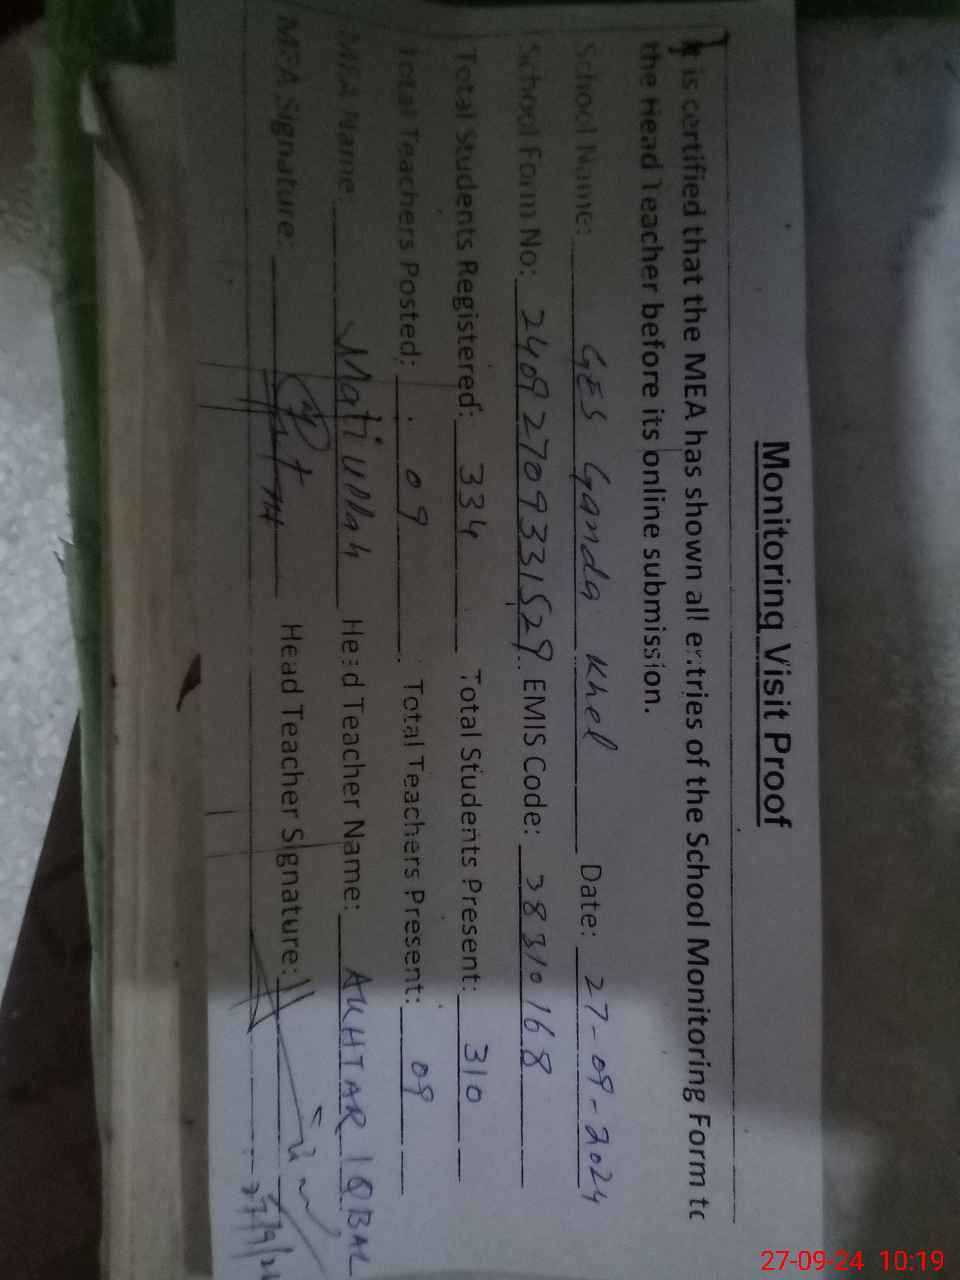 Monitoring Visit Proof
It is certified that the MEA has shown all entries of the School Monitoring Form to
the Head Teacher before its online submission.
School Name: GES Ganda Khel Date: 27-09-2024
School Form No: 24092709331529 EMIS Code: 38310168
Total Students Registered: 334 Total Students Present: 310
Total Teachers Posted: 09 Total Teachers Present: 09
MEA Name: Matiullah Head Teacher Name: AKHTAR IQBAL
MEA Signature: Head Teacher Signature:
27/9/24
27-09-24 10:19